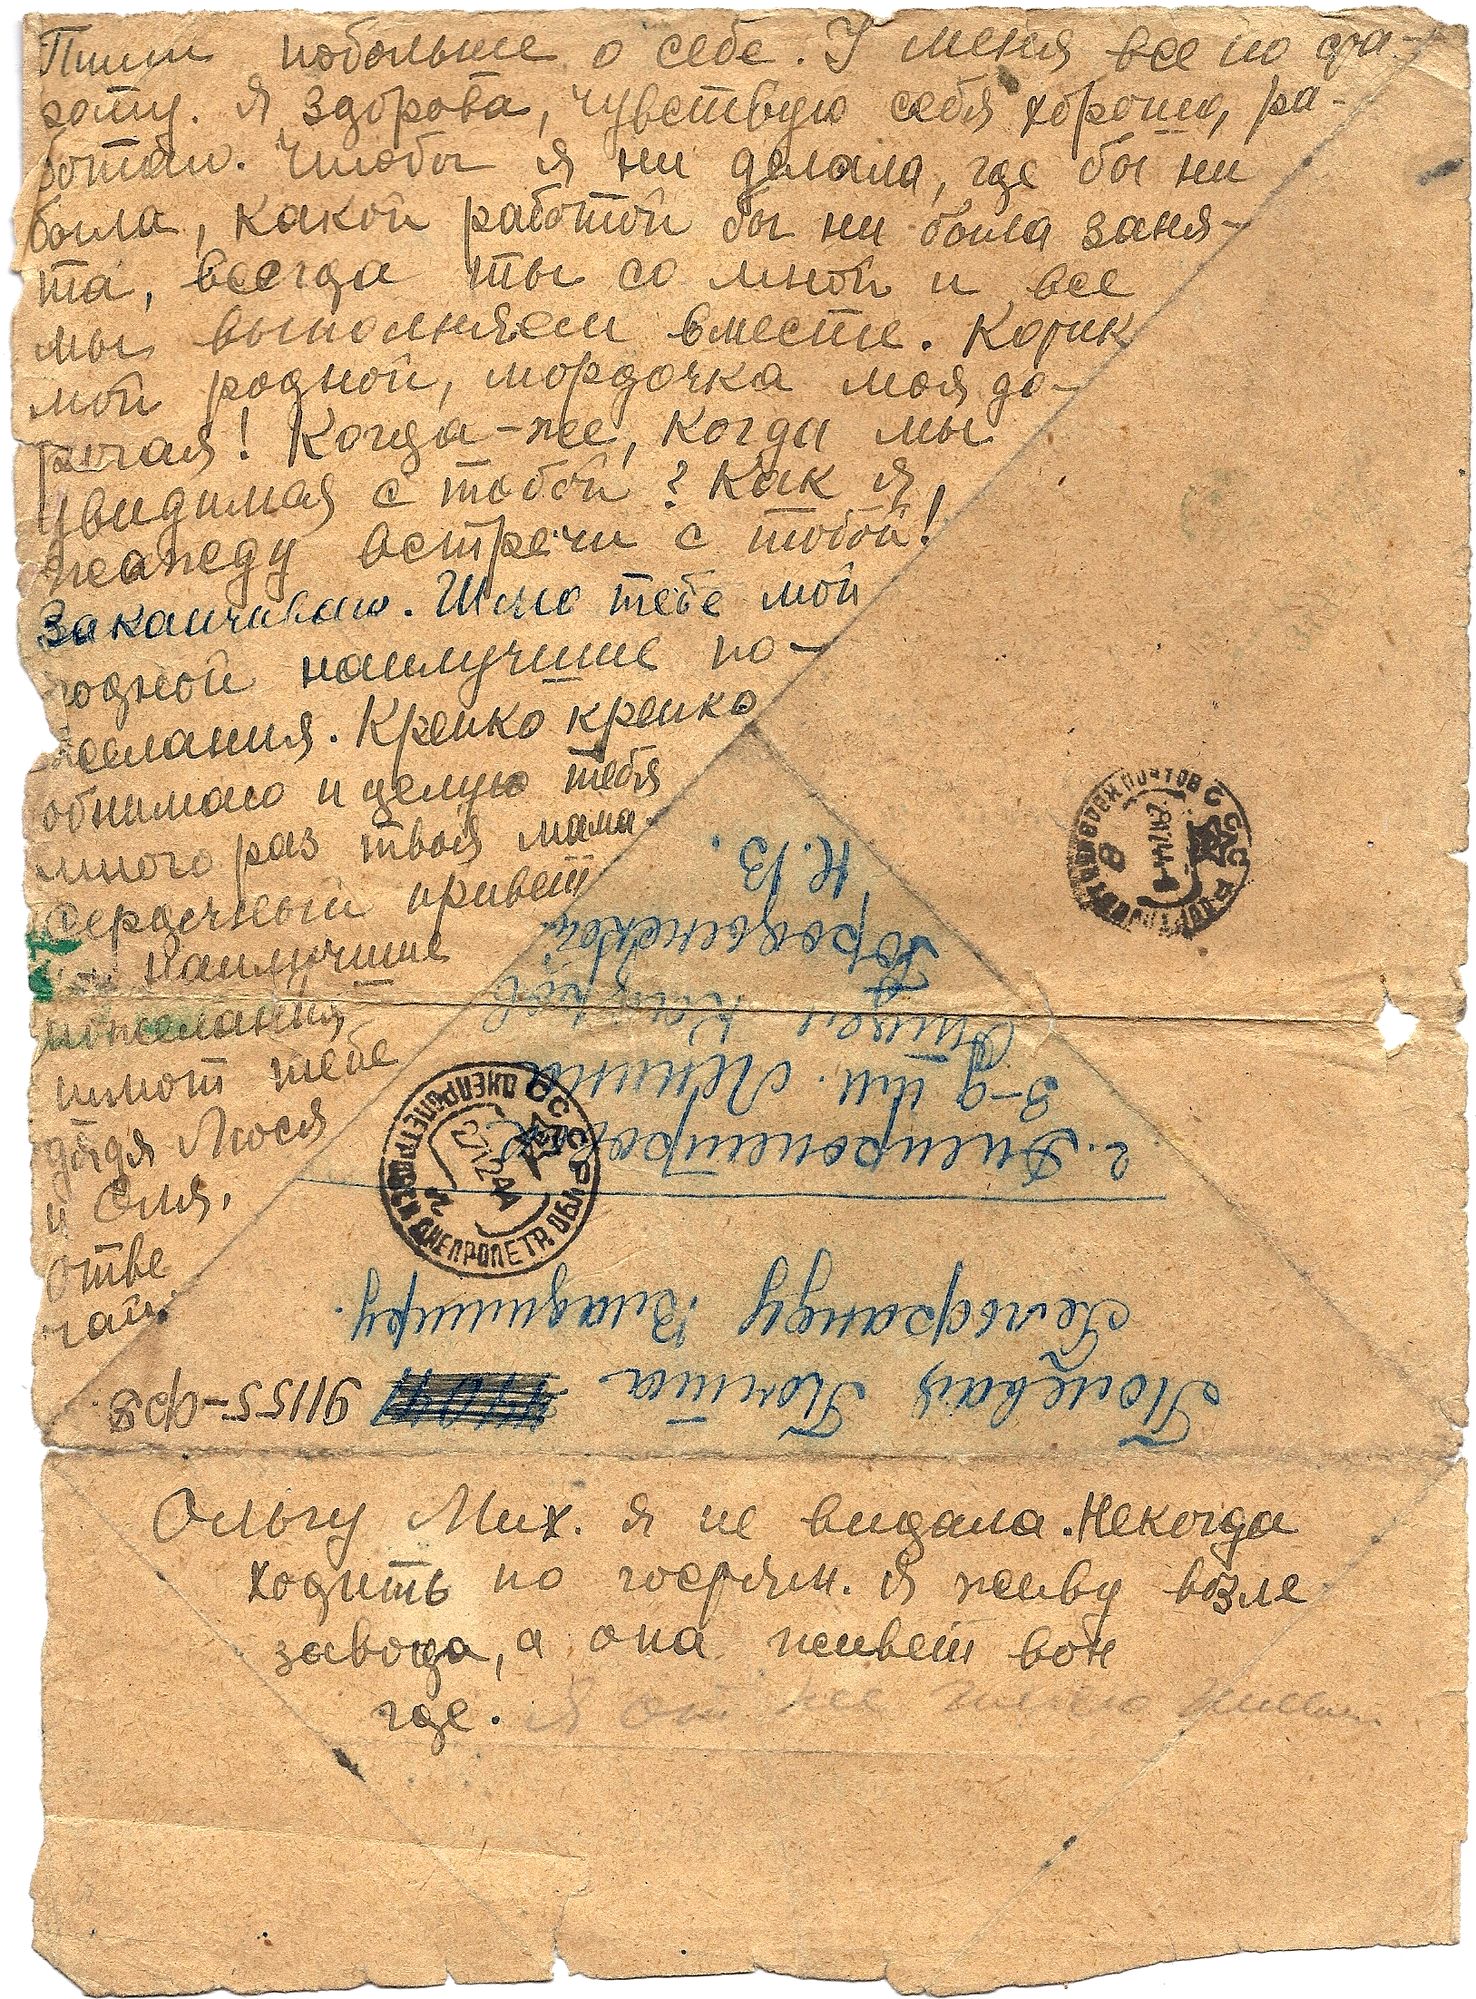 Пиши побольше о себе. У меня все по ста-
рому. Я здорова, чувствую себя хорошо, ра-
ботаю. Чтобы я ни делала, где бы ни
была, какой работой бы ни была заня-
та, всегда ты со мной и все
мы выполняем вместе. Котик
мой родной, мордочка моя до-
рогая! Когда-же, когда мы
увидимся с тобой? Как я
жажду встречи с тобой!
Заканчиваю. Шлю тебе мой
родной наилучшие по-
желания. Крепко крепко
обнимаю и целую тебя
много раз твоя мама.
Сердечный привет
и наилучшие
пожелания
шлют тебе
дядя Люся
и Оля.
Отве
чай.
Полевая Почта 91155-ф
Гельфанду Владимиру.
г. Днепропетровск
з-д им. Ленина
Городынской
Н.В.
СССР
ДНЕПРОПЕТРОВСК ДНЕПРОПЕТР. ОБЛ.
27 12 44
СССР
8
Ольгу Мих. я не видала. Некогда
ходить по гостям. Я живу возле
завода, а она живет вон
где. Я от нее